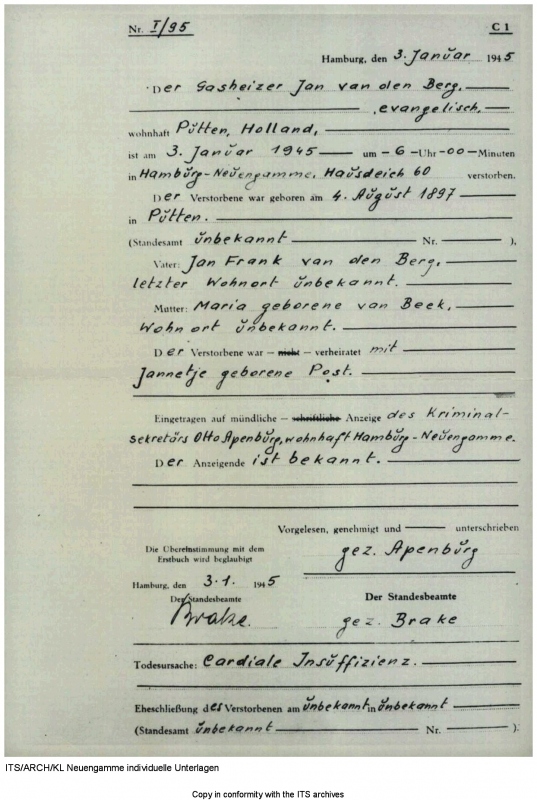 Nr. I/95 C 1
Hamburg, den 3. Januar 1945
Der Gasheizer Jan van den Berg,
evangelisch,
wohnhaft Putten, Holland,
ist am 3. Januar 1945 um - 6 - Uhr - 00 - Minuten
in Hamburg-Neuengamme, Hausdeich 60 verstorben.
Der Verstorbene war geboren am 4. August 1897
in Putten.
(Standesamt unbekannt Nr. ).
Vater: Jan Frank van den Berg,
letzter Wohnort unbekannt.
Mutter: Maria geborene van Beek,
Wohnort unbekannt.
Der Verstorbene war – nicht – verheiratet mit
Jannetje geborene Post.
Eingetragen auf mündliche – schriftliche Anzeige des Kriminal-
sekretärs Otto Apenburg, wohnhaft Hamburg-Neuengamme.
Der Anzeigende ist bekannt.
Vorgelesen, genehmigt und unterschrieben
gez. Apenburg
Die Übereinstimmung mit dem
Erstbuch wird beglaubigt
Hamburg, den 3.1. 1945
Der Standesbeamte
Brake.
Der Standesbeamte
gez. Brake
Todesursache: Cardiale Insuffizienz.
Eheschließung des Verstorbenen am unbekannt in unbekannt
(Standesamt unbekannt Nr. ).
ITS/ARCH/KL Neuengamme individuelle Unterlagen
Copy in conformity with the ITS archives